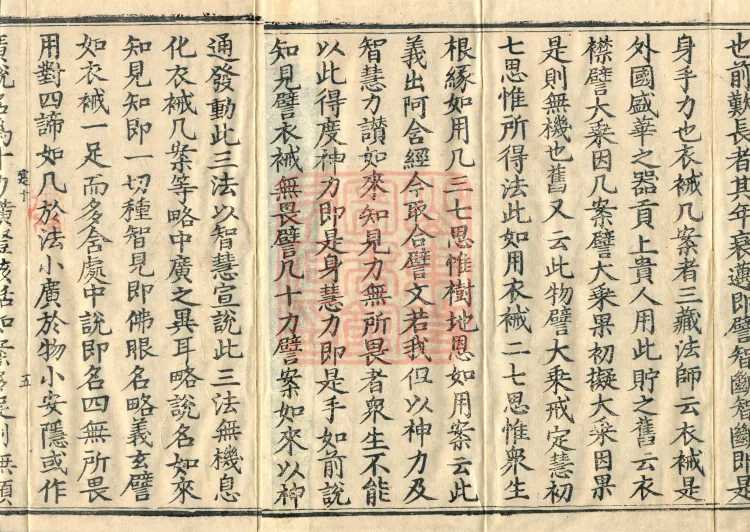 也前難長者其年衰邁即譬智斷智斷即是
身手力也衣裓几案者三藏法師云衣裓是
外國盛華之器貢上貴人用此貯之舊云衣
襟譬大乘因几案譬大乘果初擬大乘因果
是則無機也舊又云此物譬大乘戒定慧初
七思惟所得法此如用衣裓二七思惟衆生
根緣如用几三七思惟樹地恩如用案云此
義出阿含經今取合譬文若我但以神力及
智慧力讃如來知見力無所畏者衆生不能
以此得度神力即是身慧力即是手如前說
知見譬衣裓無畏譬几十力譬案如來以神
通發動此三法以智慧宣說此三法無機息
化衣裓几案等略中廣之異耳略說名如來
知見知即一切種智見即佛眼名略義玄譬
如衣裓一足而多舍處中說即名四無所畏
用對四諦如几於法小廣於物小安隱或作
五
廣說名爲十力